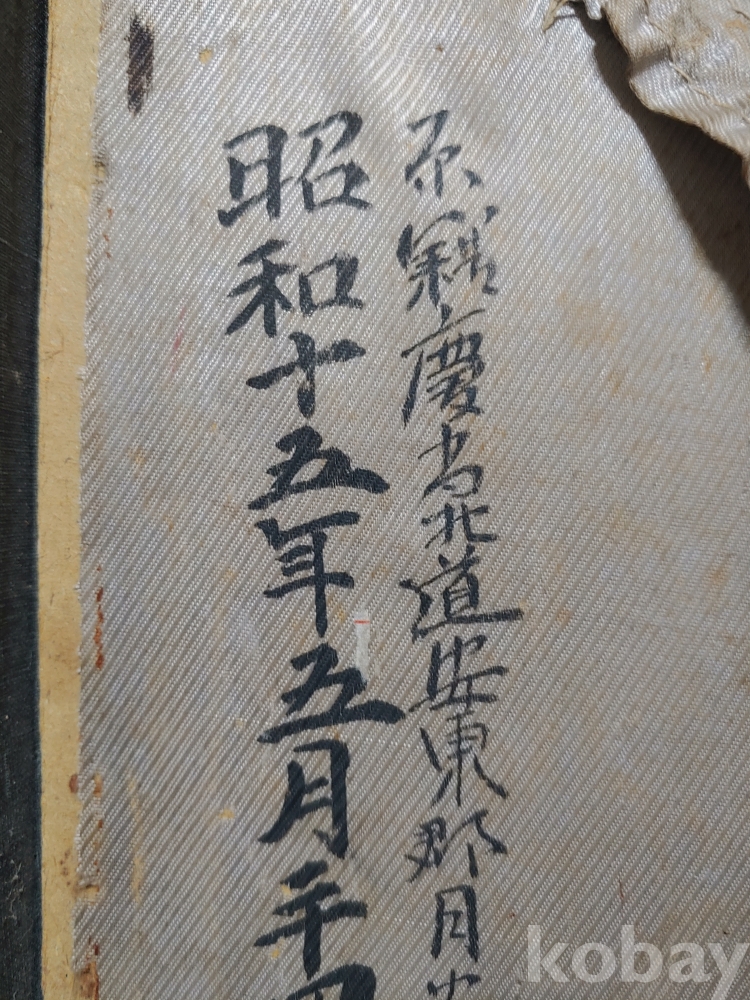 原籍慶尚北道安東郡月
昭和十五年五月二十四
kobay